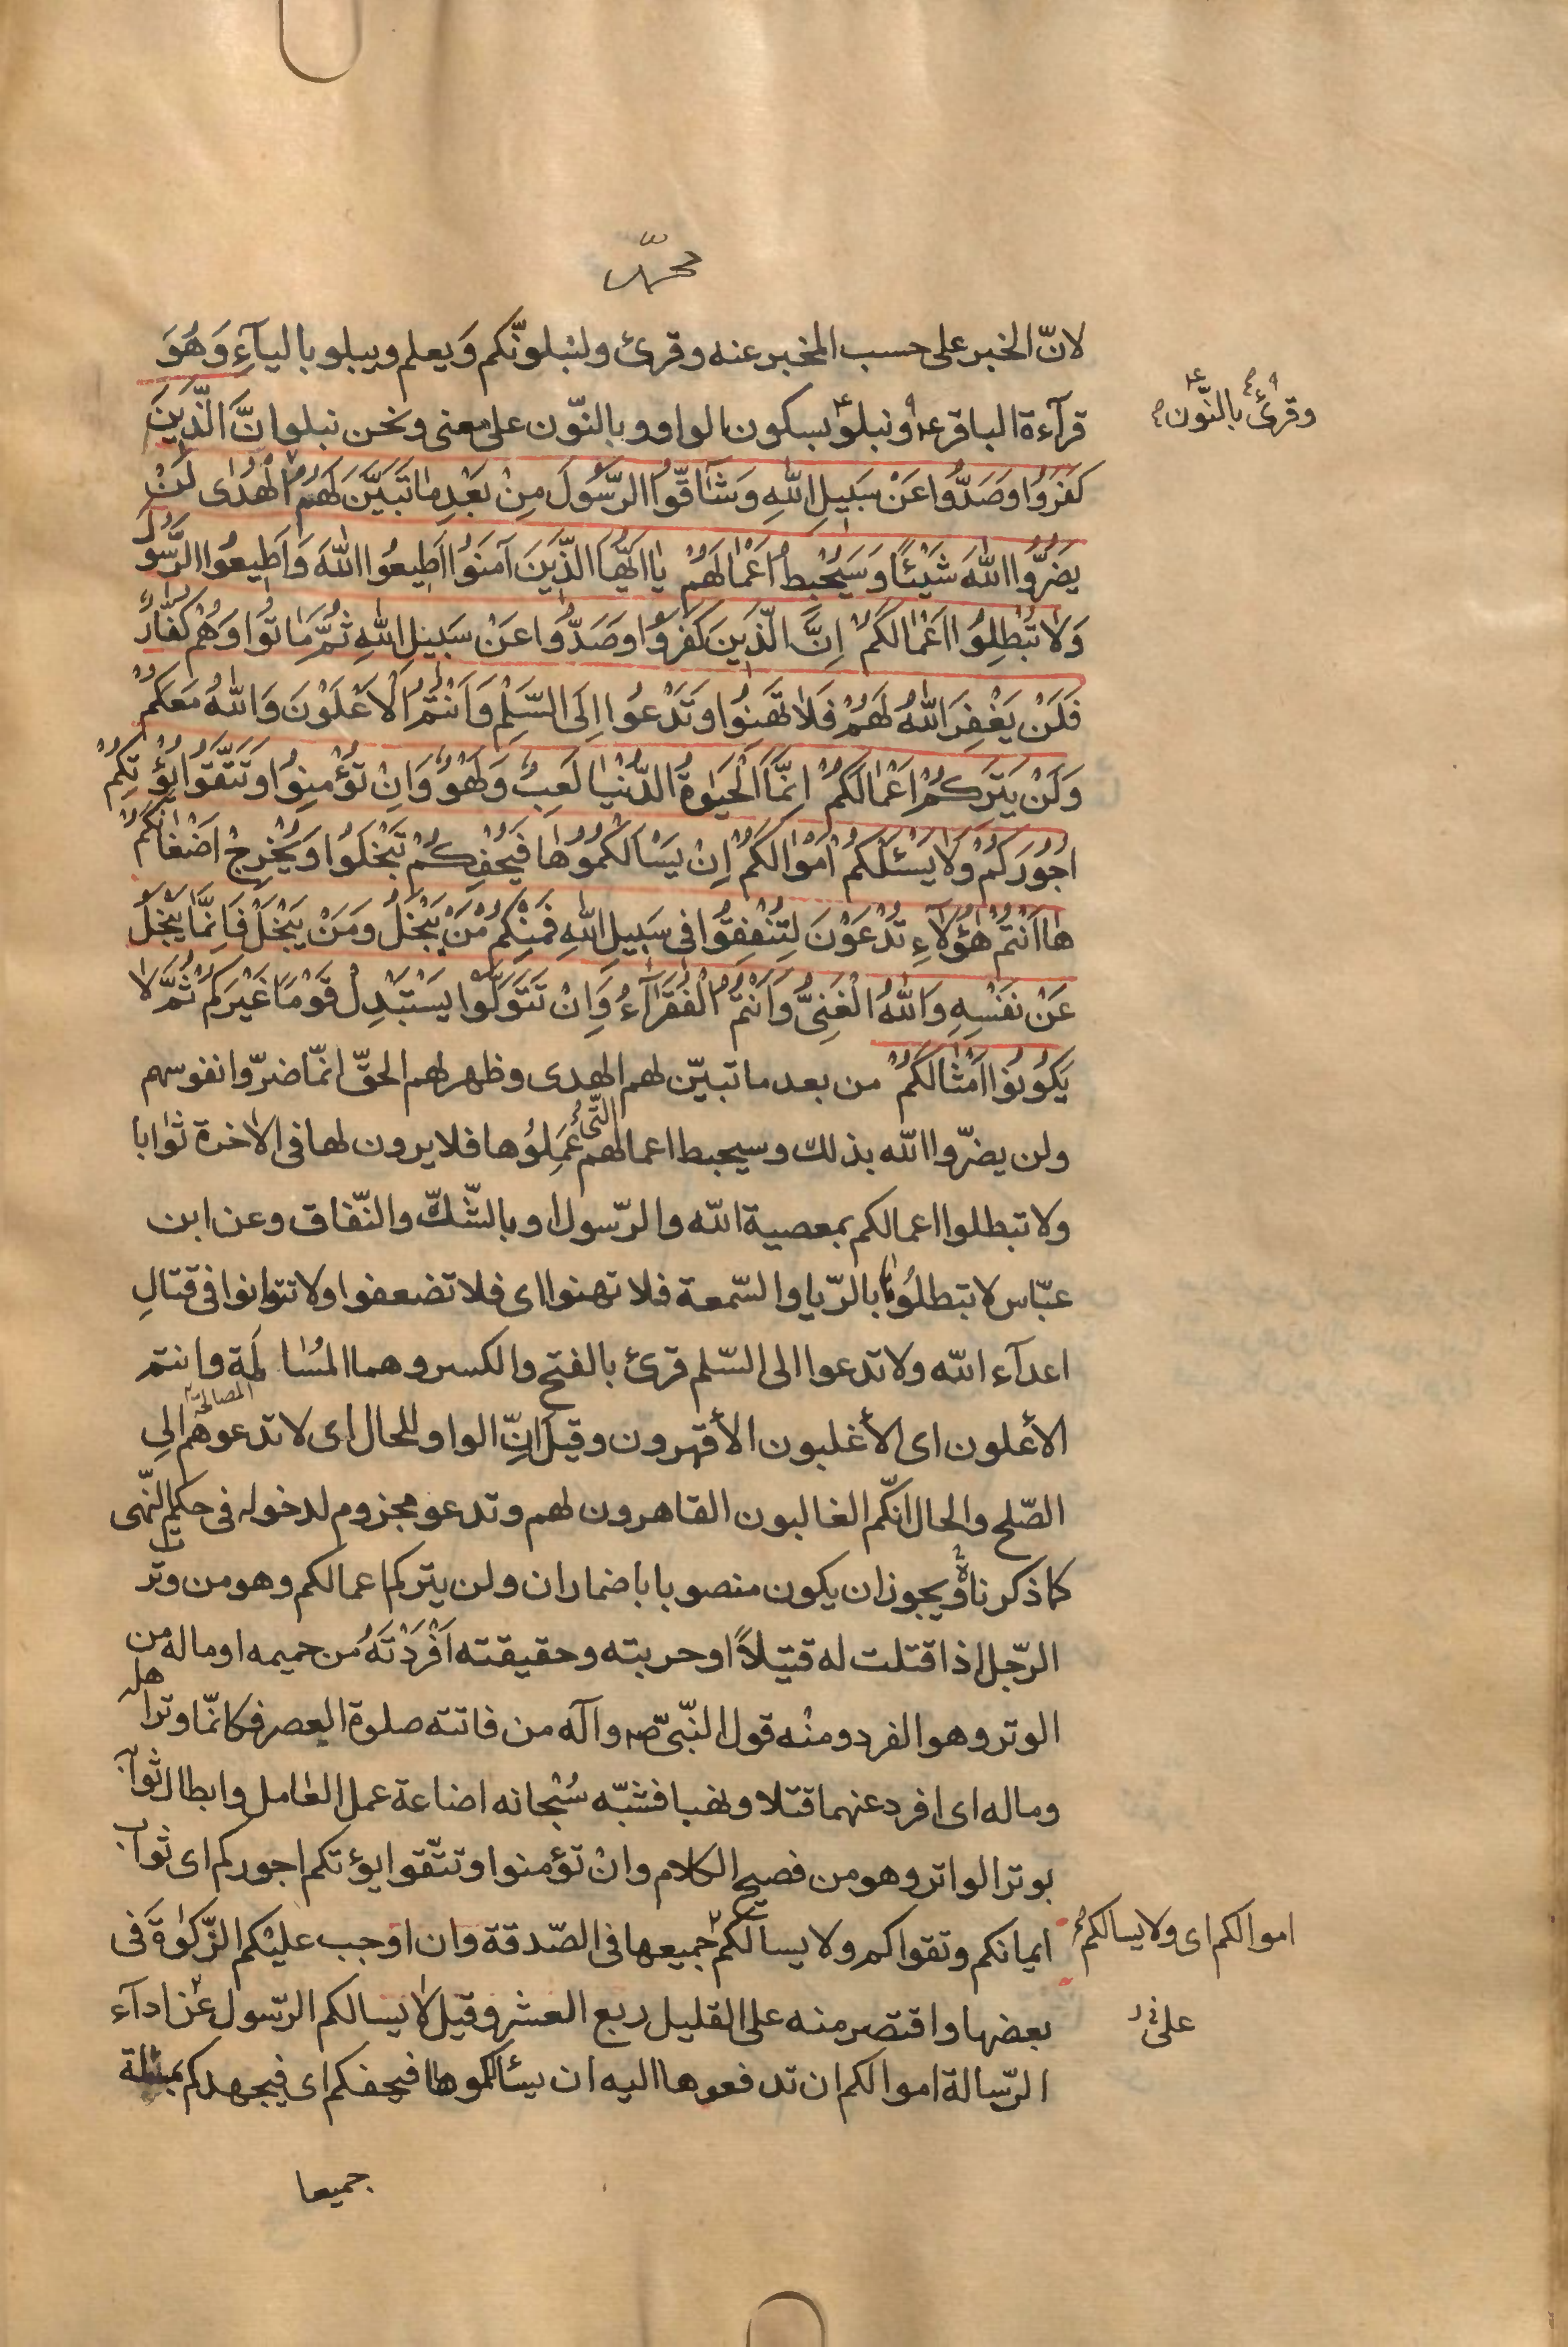 محمّد
لانّ الخبر على حسب المخبر عنه وقرئ ولنبلونّكم وَيعلم ويبلو بالياۤءِ وَهُوَ
وقرئ بالنّون
قرآءة الباقر ع ونبلو بسكون الواو وبالنّون على معنى ونحن نبلو انَّ الَّذِينَ
كَفَرُوا وَصَدُّوا عَنْ سَبِيلِ اللهِ وَشَآقُّوا الرَّسُولَ مِنْ بَعْدِ مٰا تَبَيَّنَ لَهُمُ الْهُدٰى لَنْ
يَضُرُّوا اللهَ شَيْئًا وَسَيُحْبِطُ اَعْمٰالَهُمْ يٰا اَيُّهَا الَّذِينَ آمَنُوا اَطِيعُوا اللهَ وَاَطِيعُوا الرَّسُولَ
وَلٰا تُبْطِلُوا اَعْمٰالَكُمْ اِنَّ الَّذِينَ كَفَرُوا وَصَدُّوا عَنْ سَبِيلِ اللهِ ثُمَّ مٰاتُوا وَهُمْ كُفّٰارٌ
فَلَنْ يَغْفِرَ اللهُ لَهُمْ فَلٰا تَهِنُوا وَتَدْعُوا اِلَى السَّلْمِ وَاَنْتُمُ الْاَعْلَوْنَ وَاللهُ مَعَكُمْ
وَلَنْ يَتِرَكُمْ اَعْمٰالَكُمْ اِنَّمَا الْحَيٰوةُ الدُّنْيٰا لَعِبٌ وَلَهْوٌ وَاِنْ تُؤْمِنُوا وَتَتَّقُوا يُؤْتِكُمْ
اُجُورَكُمْ وَلٰا يَسْئَلْكُمْ اَمْوٰالَكُمْ اِنْ يَسْاَلْكُمُوهٰا فَيُحْفِكُمْ تَبْخَلُوا وَيُخْرِجْ اَضْغٰانَكُمْ
هٰا اَنْتُمْ هٰؤُلٰآءِ تُدْعَوْنَ لِتُنْفِقُوا فِى سَبِيلِ اللهِ فَمِنْكُمْ مَنْ يَبْخَلُ وَمَنْ يَبْخَلْ فَاِنَّمٰا يَبْخَلُ
عَنْ نَفْسِهِ وَاللهُ الْغَنِىُّ وَاَنْتُمُ الْفُقَرٰآءُ وَاِنْ تَتَوَلَّوْا يَسْتَبْدِلْ قَوْمًا غَيْرَكُمْ ثُمَّ لٰا
يَكُونُوا اَمْثٰالَكُمْ من بعد ما تبيّن لهم الهدى وظهر لهم الحقّ انّما ضرّوا نفوسهم
ولن يضرّوا الله بذلك وسيحبط اعمالهم الّتى عَمِلُوها فلا يرون لها فى الاخرة ثوابا
ولا تبطلوا اعمالكم بمعصية الله والرّسول او بالشّكّ والنّفاق وعن ابن
عبّاس لا تبطلُوها بالرّيا والسّمعة فلا تهنوا اى فلا تضعفوا ولا تتوانوا فى قتالِ
اعدآء الله ولا تدعوا الى السّلم قرئ بالفتح والكسر وهما المُسٰالَمة وانتم
المصالحة
الأعلون اى الأغلبون الأقهرون وقيل انّ الواو للحال اى لا تدعوهم الى
الصّلح والحال انّكم الغالبون القاهرون لهم وتدعو مجزوم لدخوله فى حكم النّهى
كما ذكرناه ويجوز ان يكون منصوبا باضمار ان ولن يتركم اعمالكم وهو من وتر
الرّجل اذا قتلت له قتيلاً او حربته وحقيقته اَفْرَدْتَهُ من حميمه او ماله من
الوتر وهو الفرد ومنه قول النّبىّ ص وآله من فاتته صلوة العصر فكانّما وتر اهله
وماله اى افرد عنهما قتلا ونهبا فشبّه سُبْحٰانه اضاعة عمل العٰامل وابطال ثوابه
بوتر الواتر وهو من فصيح الكلام وانْ تؤمنوا وتتّقوا يؤتكم اجوركم اى ثواب
ايمانكم وتقواكم ولا يسالكم جميعها فى الصّدقة وان اوجب عليْكم الزّكوٰةَ فى
اموالكم اى ولا يسالكم
بعضها واقتصر منه على القليل ربع العشر وقيل لا يسالكم الرّسول عن ادآء
على
الرّسالة اموالكم ان تدفعوها اليه ان يسألكموها فيحفكم اى فيجهدكم بمسئلة
جميعا